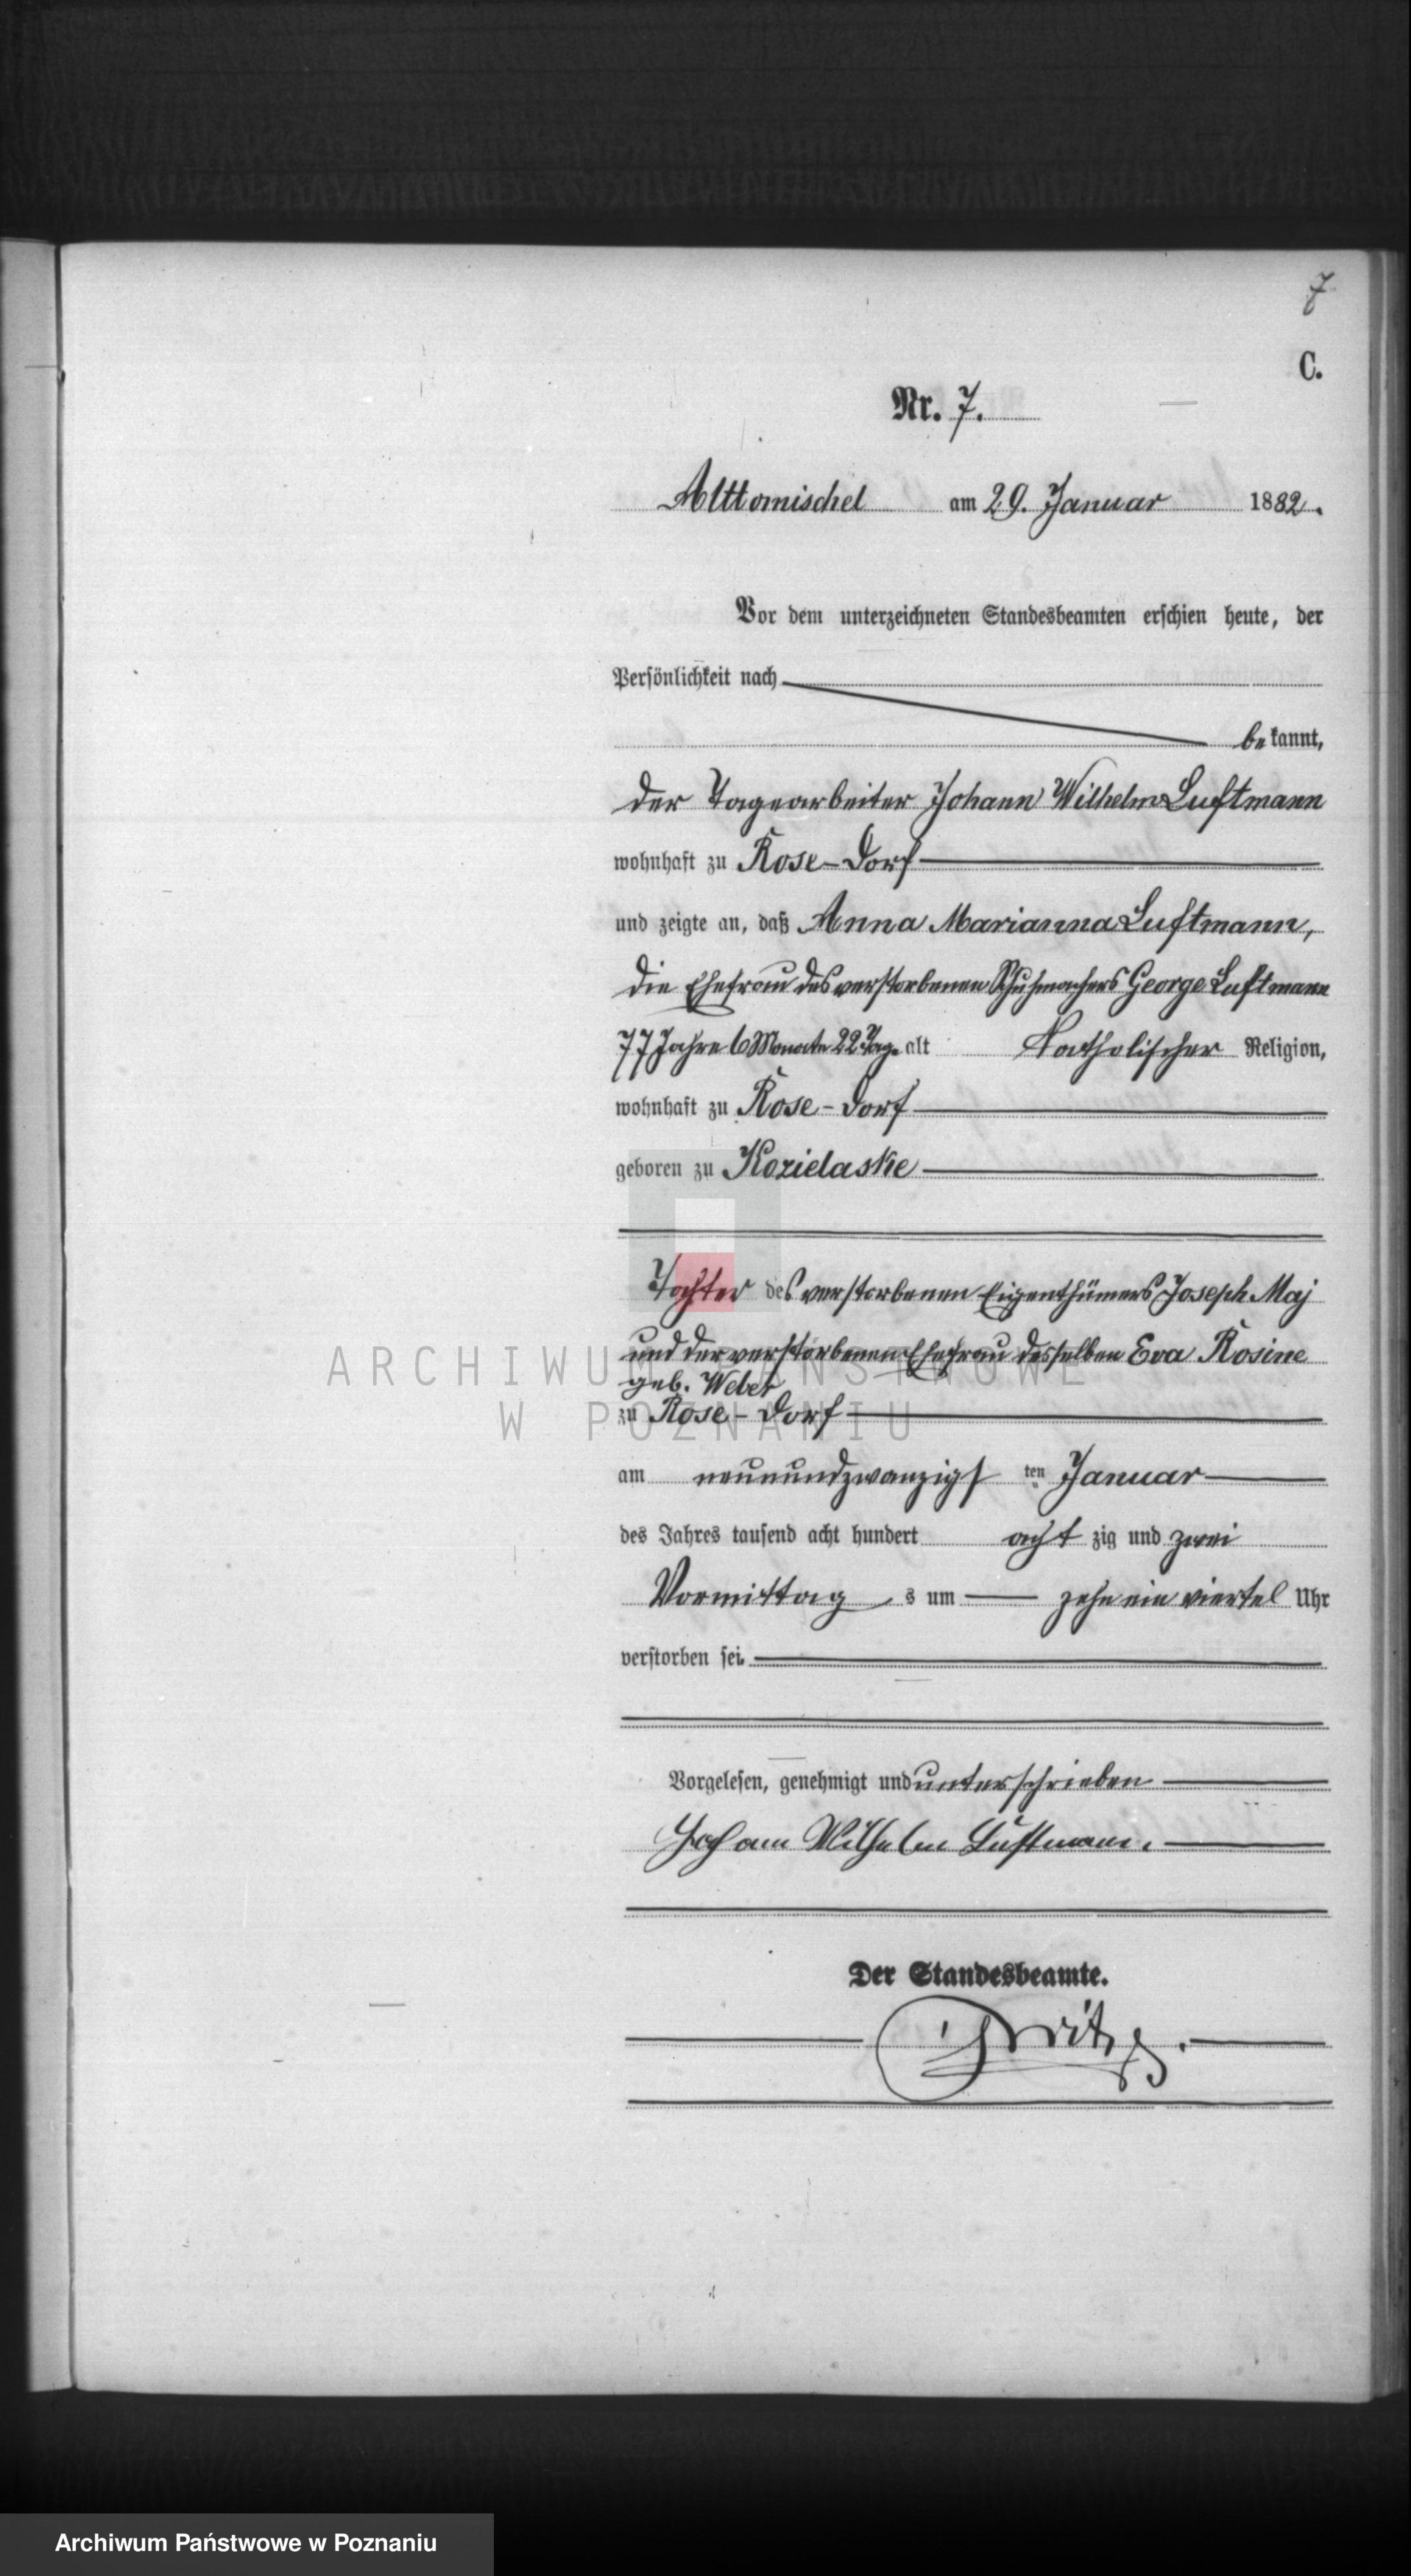 7
C.
Nr. 7.
Alttomischel am 29. Januar 1882.
Vor dem unterzeichneten Standesbeamten erschien heute, der
Persönlichkeit nach
bekannt,
der Tagearbeiter Johann Wilhelm Luftmann
wohnhaft zu Rose-Dorf
und zeigte an, daß Anna Marianna Luftmann,
die Ehefrau des verstorbenen Schuhmachers George Luftmann
77 Jahre 6 Monate 22 Tage alt Katholischer Religion,
wohnhaft zu Rose-Dorf
geboren zu Kozielaske
Tochter des verstorbenen Eigenthümers Joseph Maj
und der verstorbenen Ehefrau desselben Eva Rosine
geb. Weber
zu Rose-Dorf
am neunundzwanzigsten Januar
des Jahres tausend acht hundert achtzig und zwei
Vormittags um zehn ein viertel Uhr
verstorben sei.
Vorgelesen, genehmigt und unterschrieben
Johann Wilhelm Luftmann.
Der Standesbeamte.
ARCHIWUM PAŃSTWOWE
W POZNANIU
Archiwum Państwowe w Poznaniu